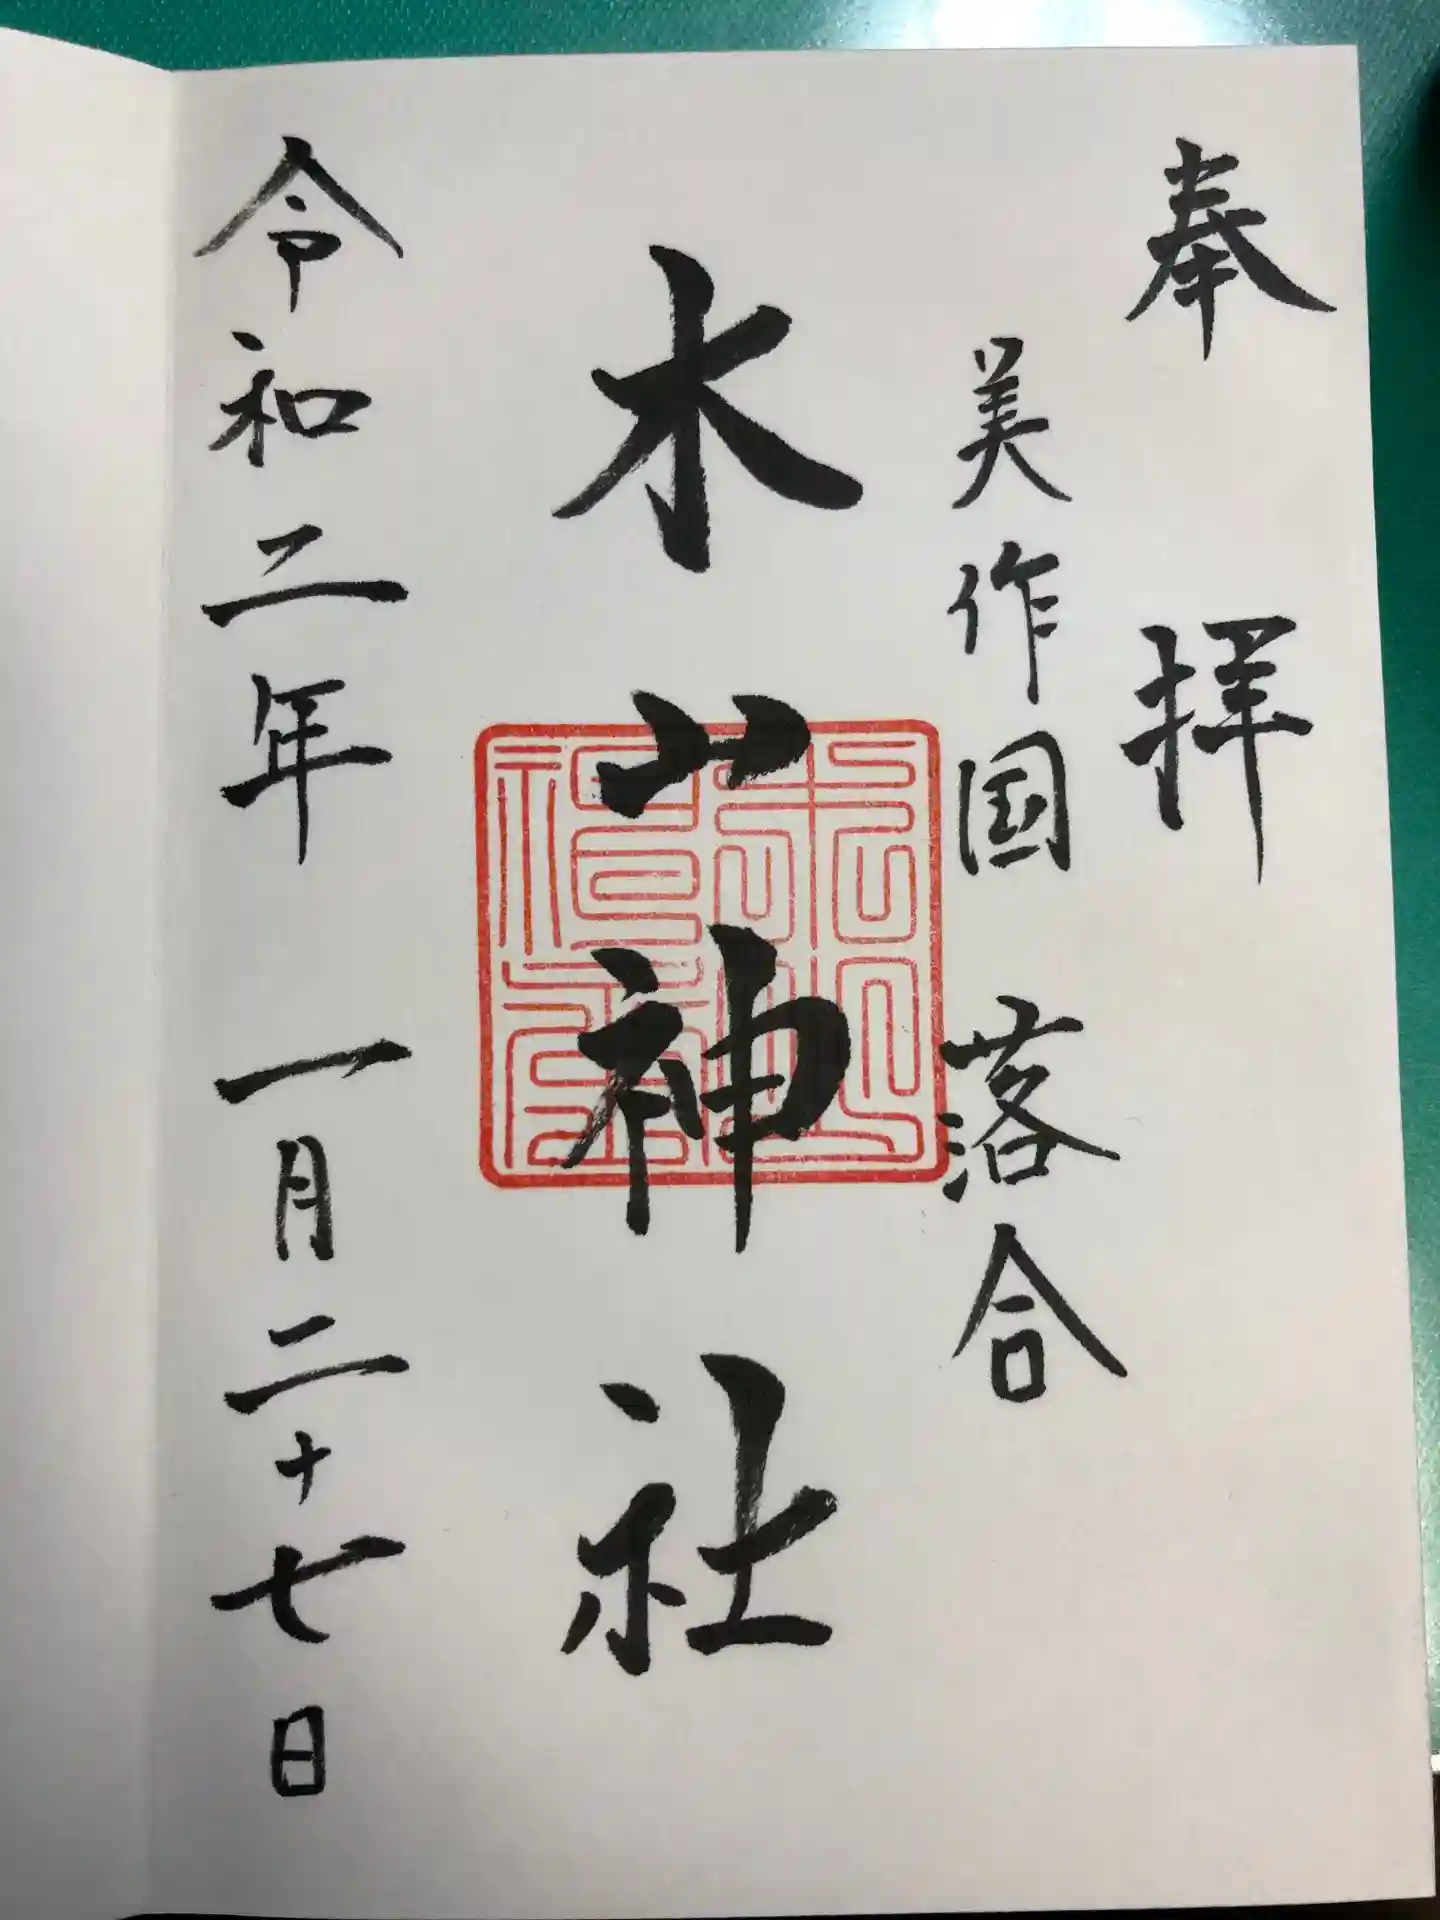 奉拝
美作国 落合
木山神社
令和二年 一月二十七日